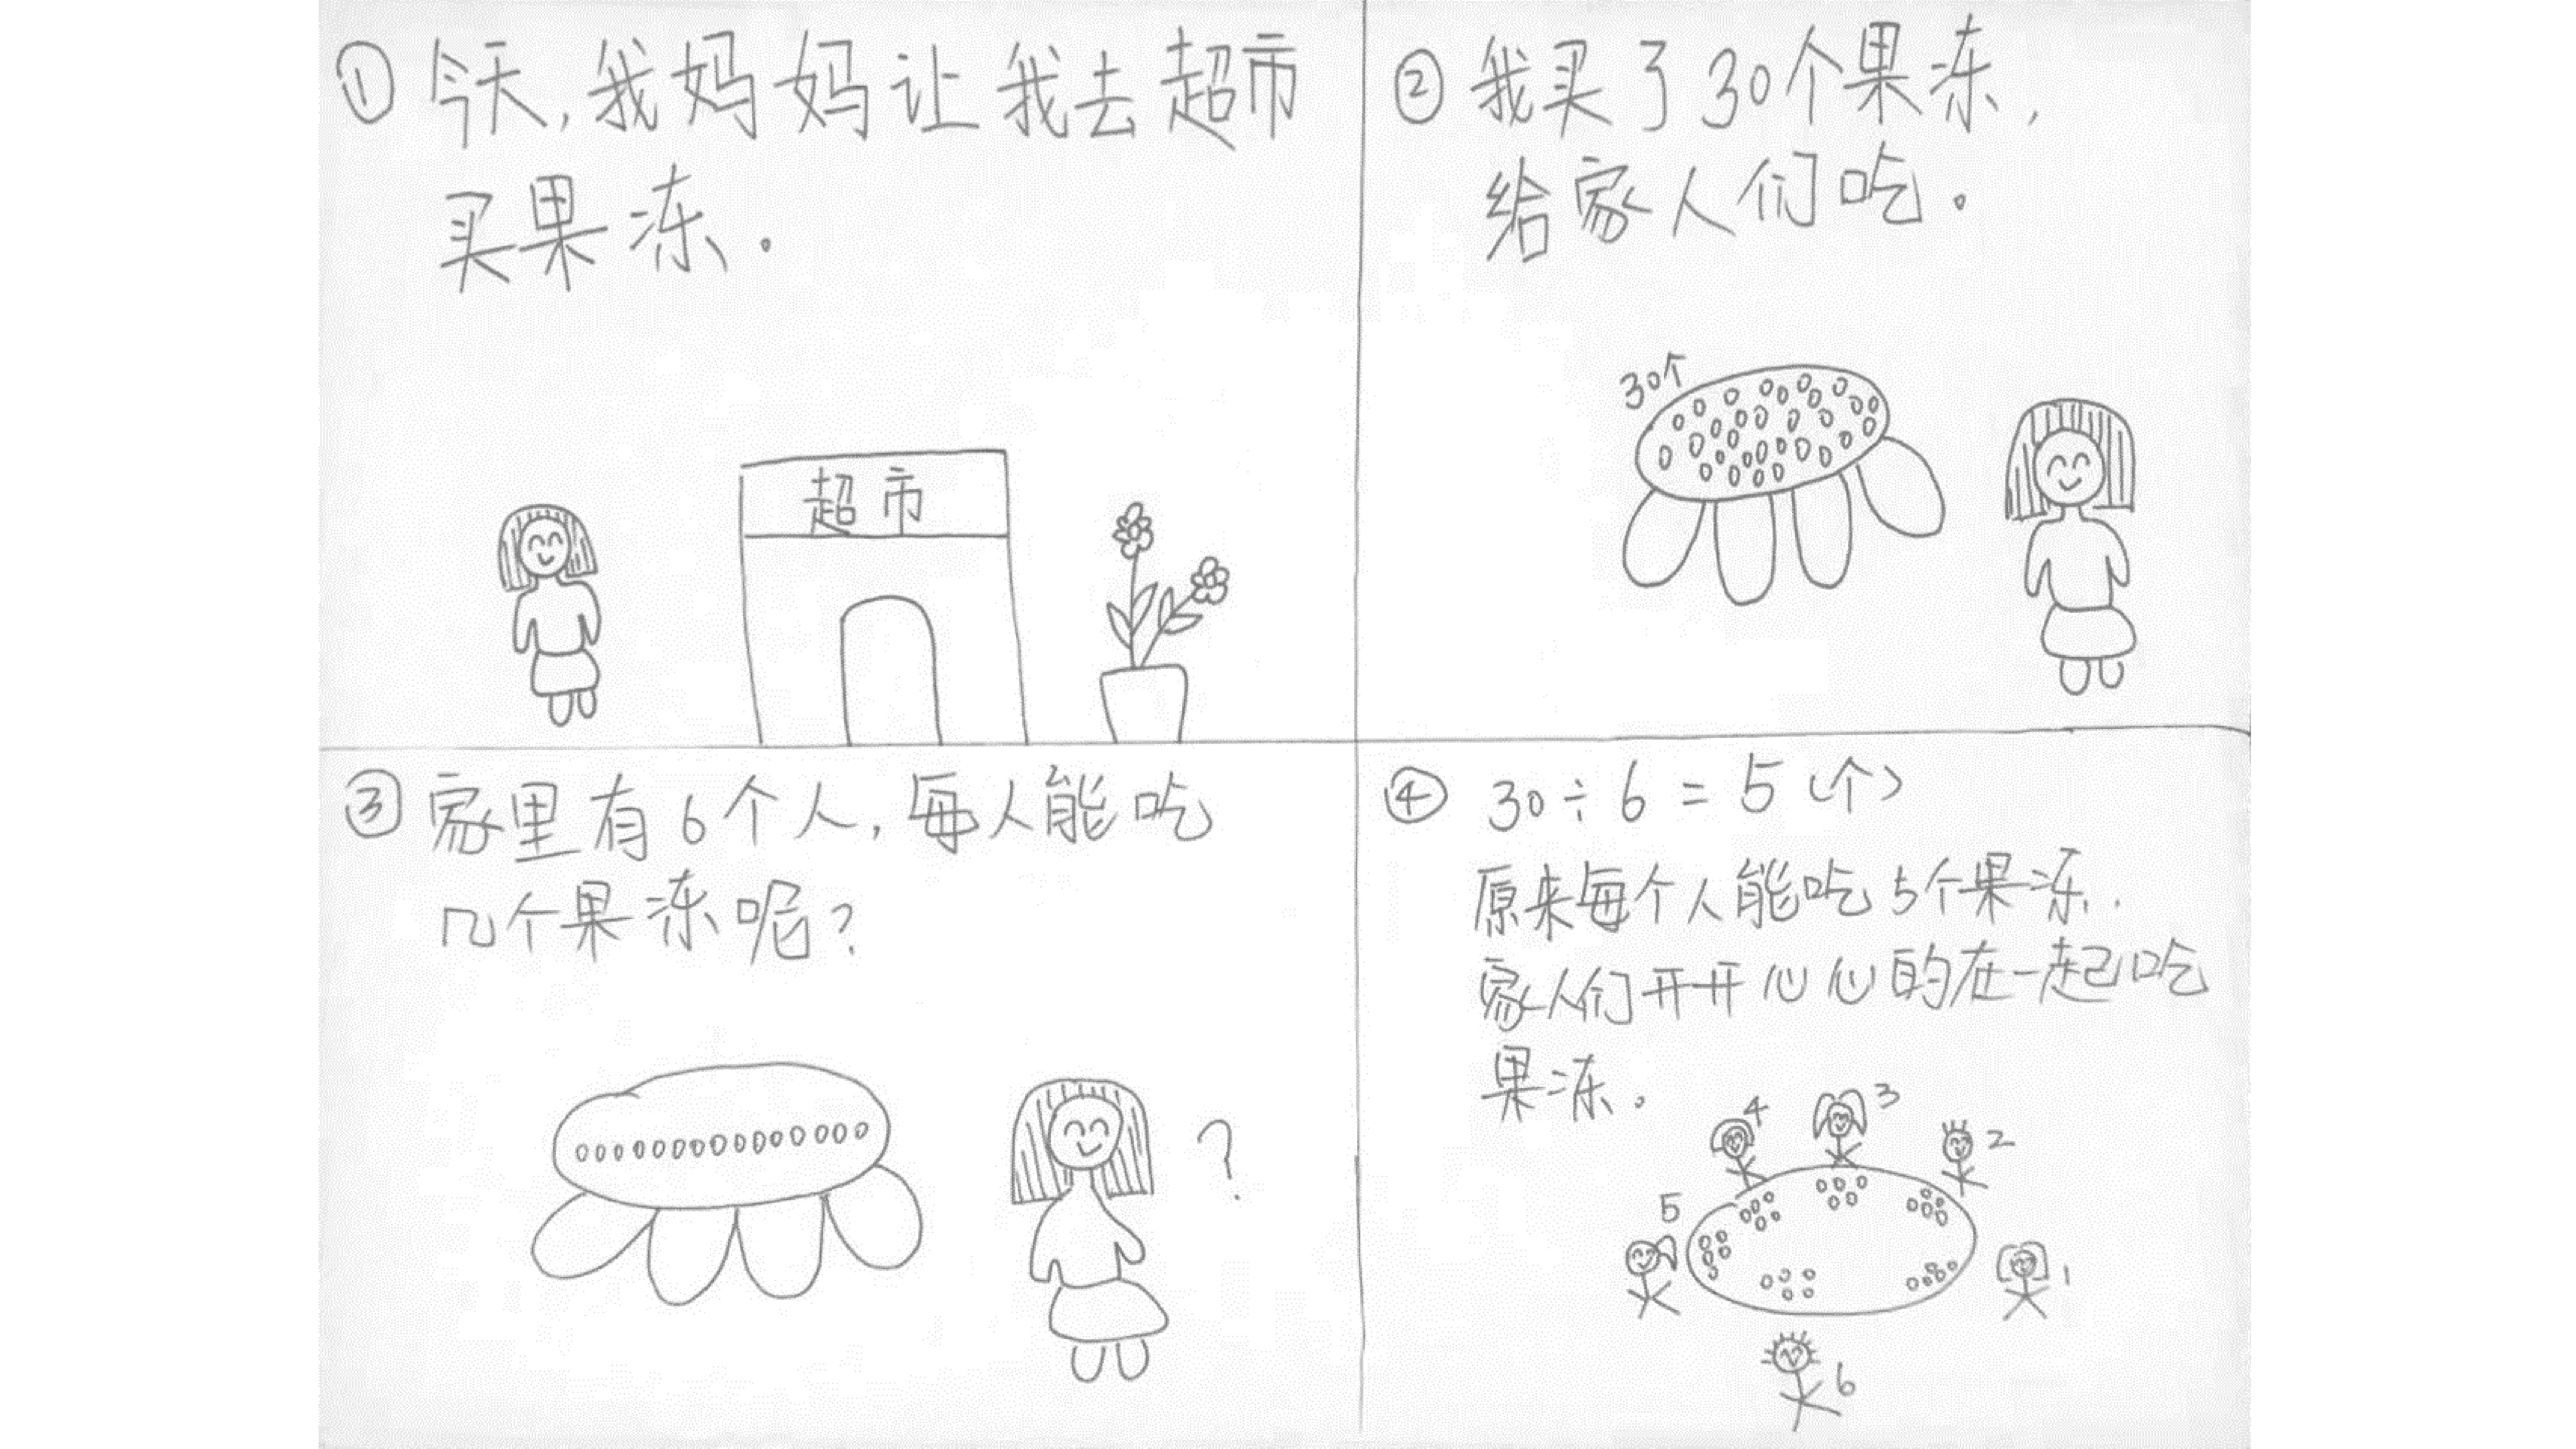 ① 今天,我妈妈让我去超市
买果冻.
超市
② 我买了30个果冻,
给家人们吃。
30个
③ 家里有6个人,每人能吃
几个果冻呢?
?
④ 30÷6=5(个)
原来每个人能吃5个果冻.
家人们开开心心的在一起吃
果冻。
4
3
2
5
1
6